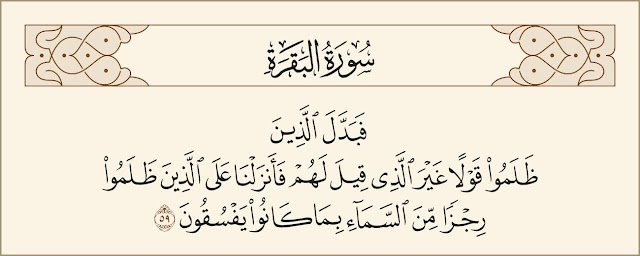 سُورَةُ البَقَرَةِ
فَبَدَّلَ ٱلَّذِينَ
ظَلَمُوا۟ قَوْلًا غَيْرَ ٱلَّذِى قِيلَ لَهُمْ فَأَنزَلْنَا عَلَى ٱلَّذِينَ ظَلَمُوا۟
رِجْزًا مِّنَ ٱلسَّمَآءِ بِمَا كَانُوا۟ يَفْسُقُونَ ٥٩